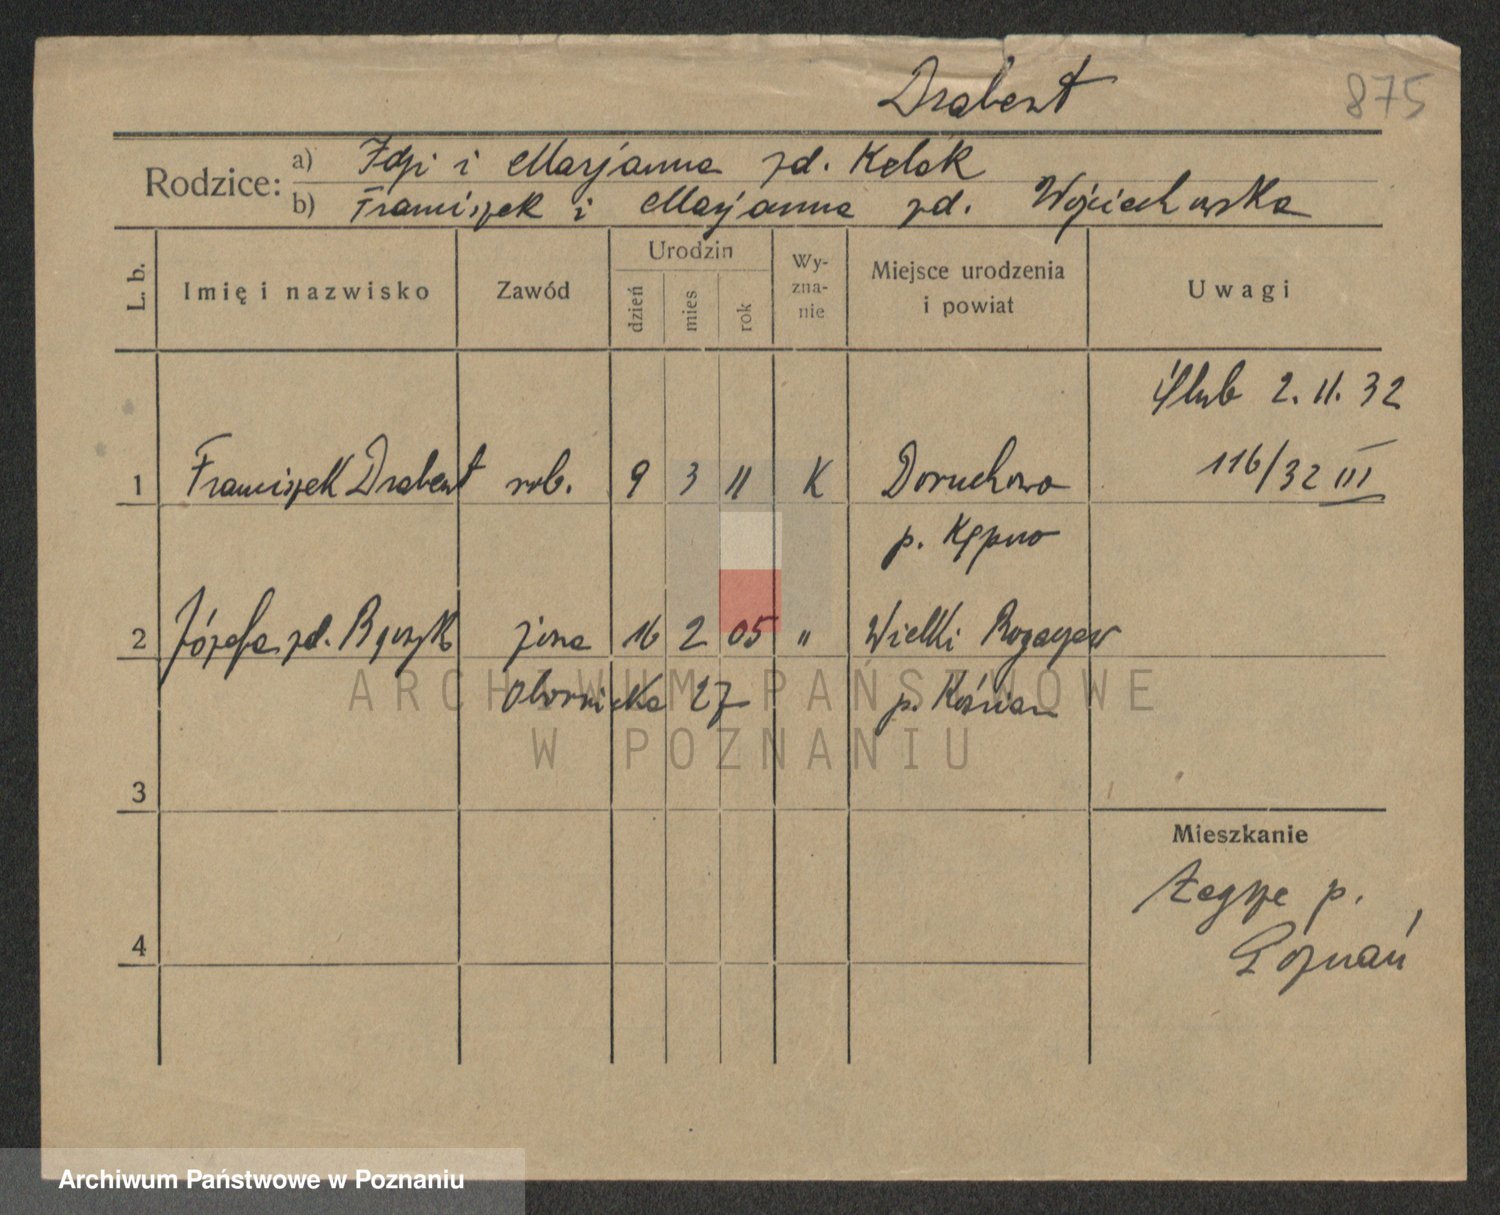 Drabent
875
Rodzice: a) Idzi i Marjanna zd. Kelak
b) Franciszek i Marjanna zd. Wojciechowska
L. b. Imię i nazwisko Zawód Urodzin dzień mies rok Wyznanie Miejsce urodzenia i powiat Uwagi
Ślub 2.11.32
1 Franciszek Drabent rob. 9 3 11 K Doruchowo 116/32 III
p. Kępno
2 Józefa zd. żona 16 2 05 " Wielki
Obornicka 27 p. Kościan
ARCHIWUM PAŃSTWOWE
W POZNANIU
3
Mieszkanie
Żegrze p.
Poznań
4
Archiwum Państwowe w Poznaniu